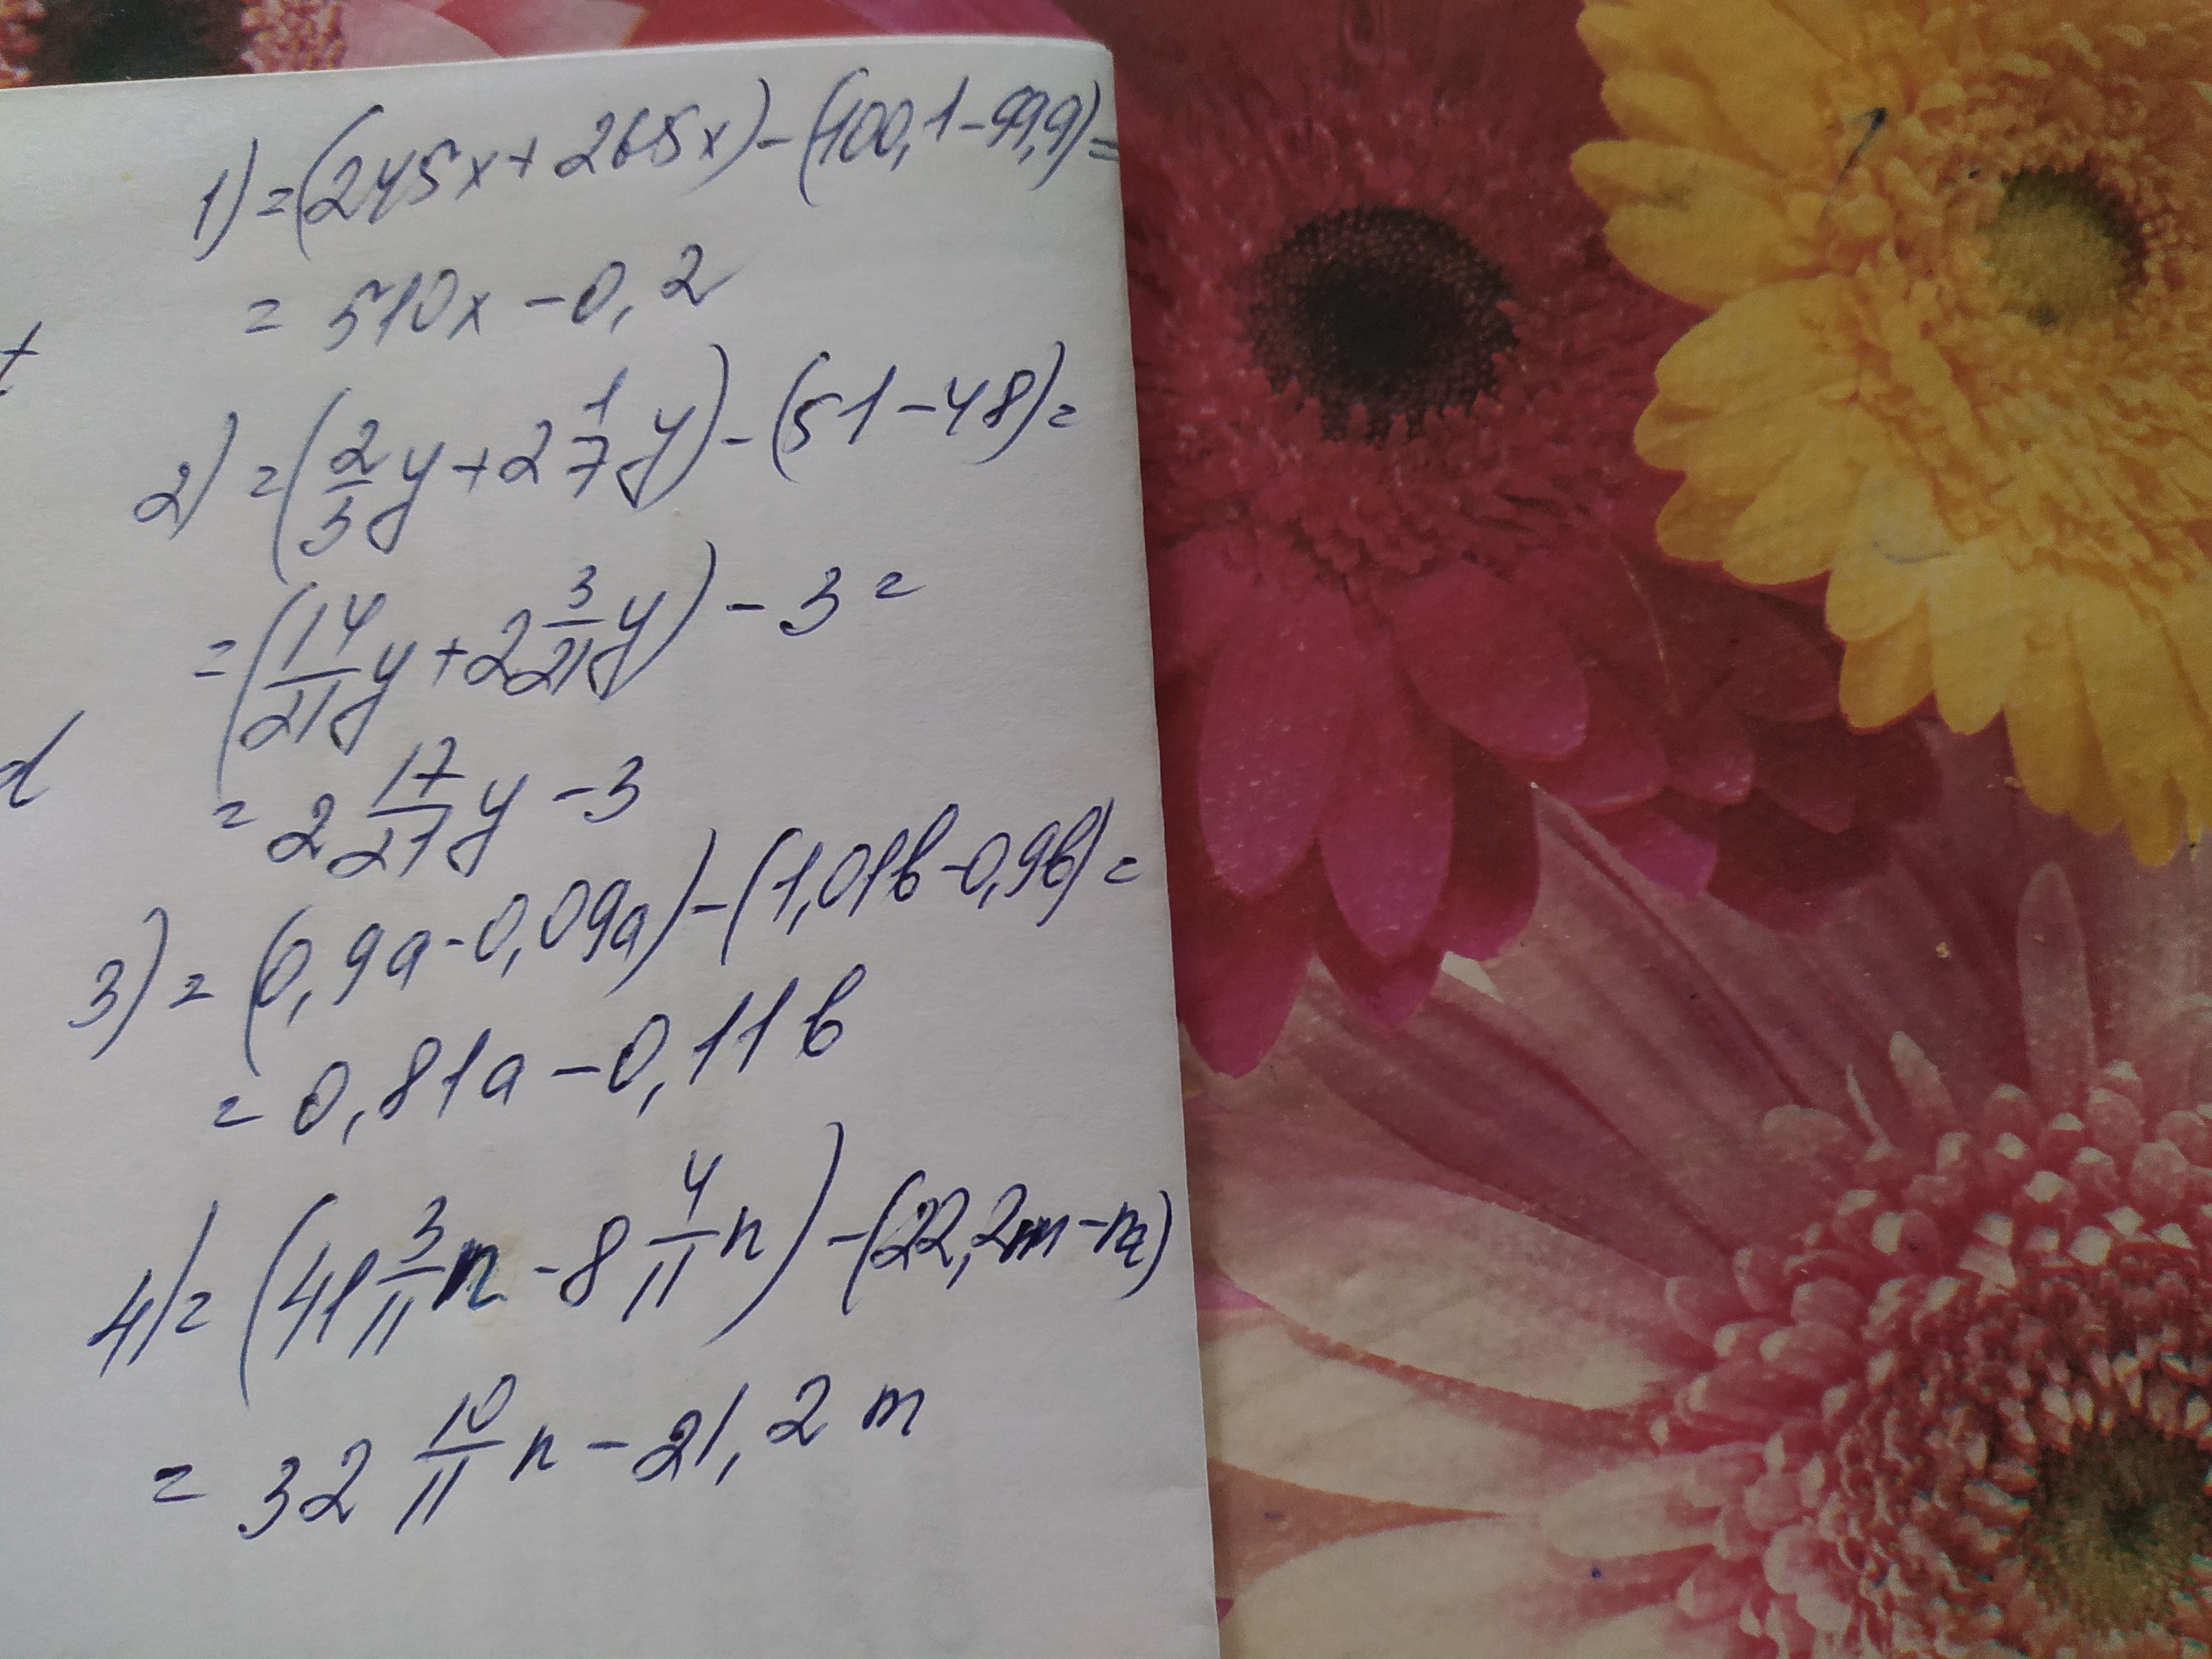 1) = (245x + 265x) - (100,1 - 99,9) =
= 510x - 0,2
2) = (2/3 y + 2 1/7 y) - (51 - 48) =
= (14/21 y + 2 3/21 y) - 3 =
= 2 17/21 y - 3
3) = (0,9a - 0,09a) - (1,01b - 0,9b) =
= 0,81a - 0,11b
4) = (41 3/11 n - 8 4/11 n) - (22,2m - m)
= 32 10/11 n - 21,2 m